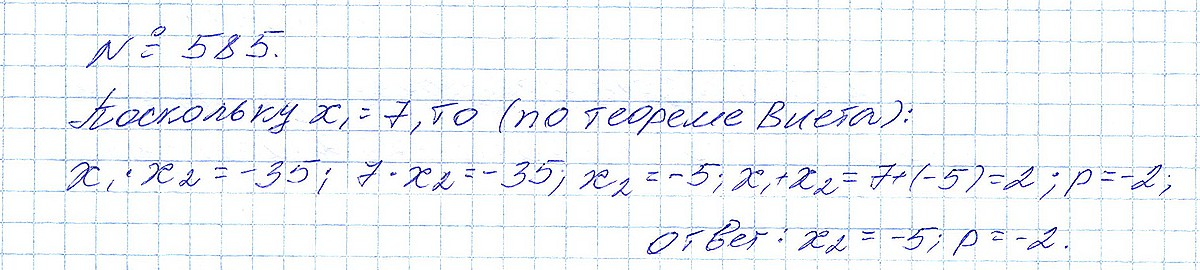 № 585.
Поскольку x₁ = 7, то (по теореме Виета):
x₁ · x₂ = -35; 7 · x₂ = -35; x₂ = -5; x₁ + x₂ = 7 + (-5) = 2; p = -2;
ответ: x₂ = -5; p = -2.